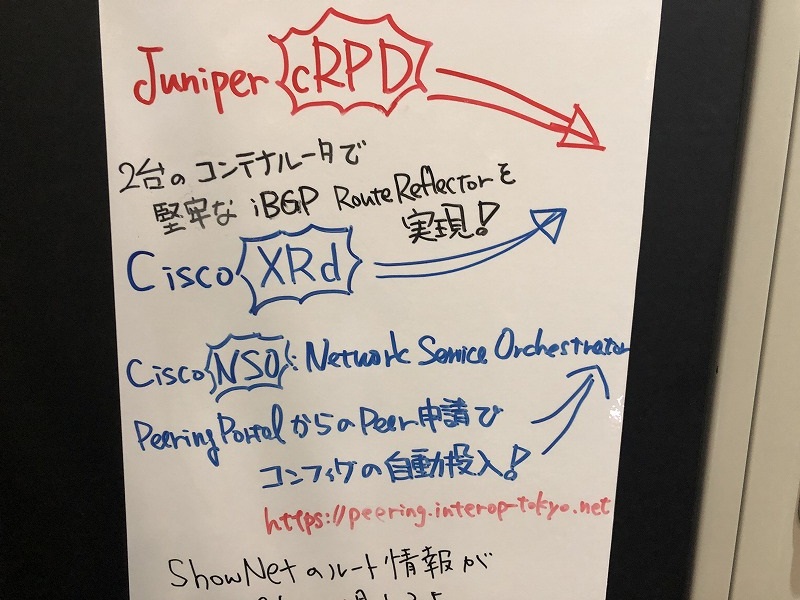 Juniper cRPD
2台のコンテナルータで
堅牢な iBGP RouteReflectorを
実現!
Cisco XRd
Cisco NSO: Network Service Orchestrator
PeeringPortalからのPeer申請で
コンフィグの自動投入!
https://peering.interop-tokyo.net
ShowNetのルート情報が